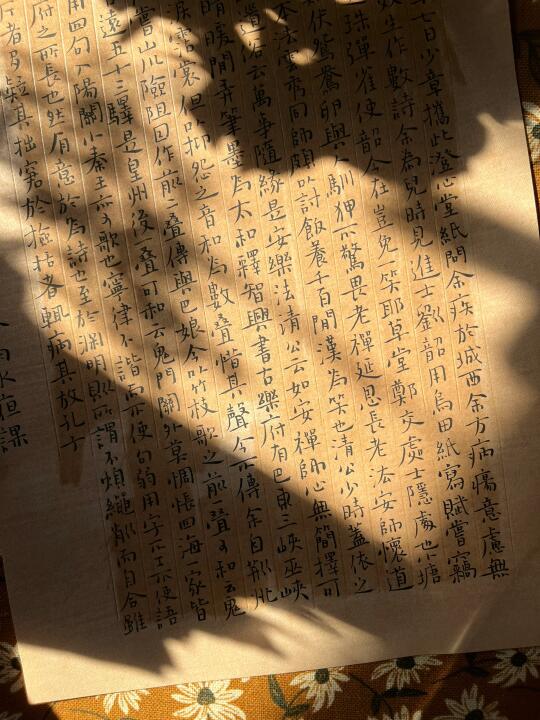 七日少章攜此澄心堂紙問余疾於城西余方病瘍意慮無
生作數詩余為兒時見進士劉韶用烏田紙寫賦嘗竊
珠彈雀使韶今在豈免笑耶草堂鄭交處士隱處也塘
伏鴛鴦卵與人馴狎不驚畏老禪延恩長老法安師懷道
法雲秀同師頗以討飯養千百閒漢為笑也清公少時蓋依之
遺俗云萬事隨緣是安樂法清公云如安禪師心無簡擇可
晴暖閒弄筆墨為太和釋智興書古樂府有巴東三峽巫峽
淚霑裳但以抑怨之音和為數疊惜其聲今不傳余自荊州
嘗山川險阻因作前二疊傳與巴娘令以竹枝歌之前一疊可和云鬼
遠五十三驛是皇州後一疊可和云鬼門關外莫惆悵四海一家皆
用四句入陽關小秦王亦可歌也寧律不諧而不使句弱用字不工不使語
府之所長也然有意於為詩也至於淵明則所謂不煩繩削而自合雖
者多疑其拙窘於檢括者輒病其放孔子
課